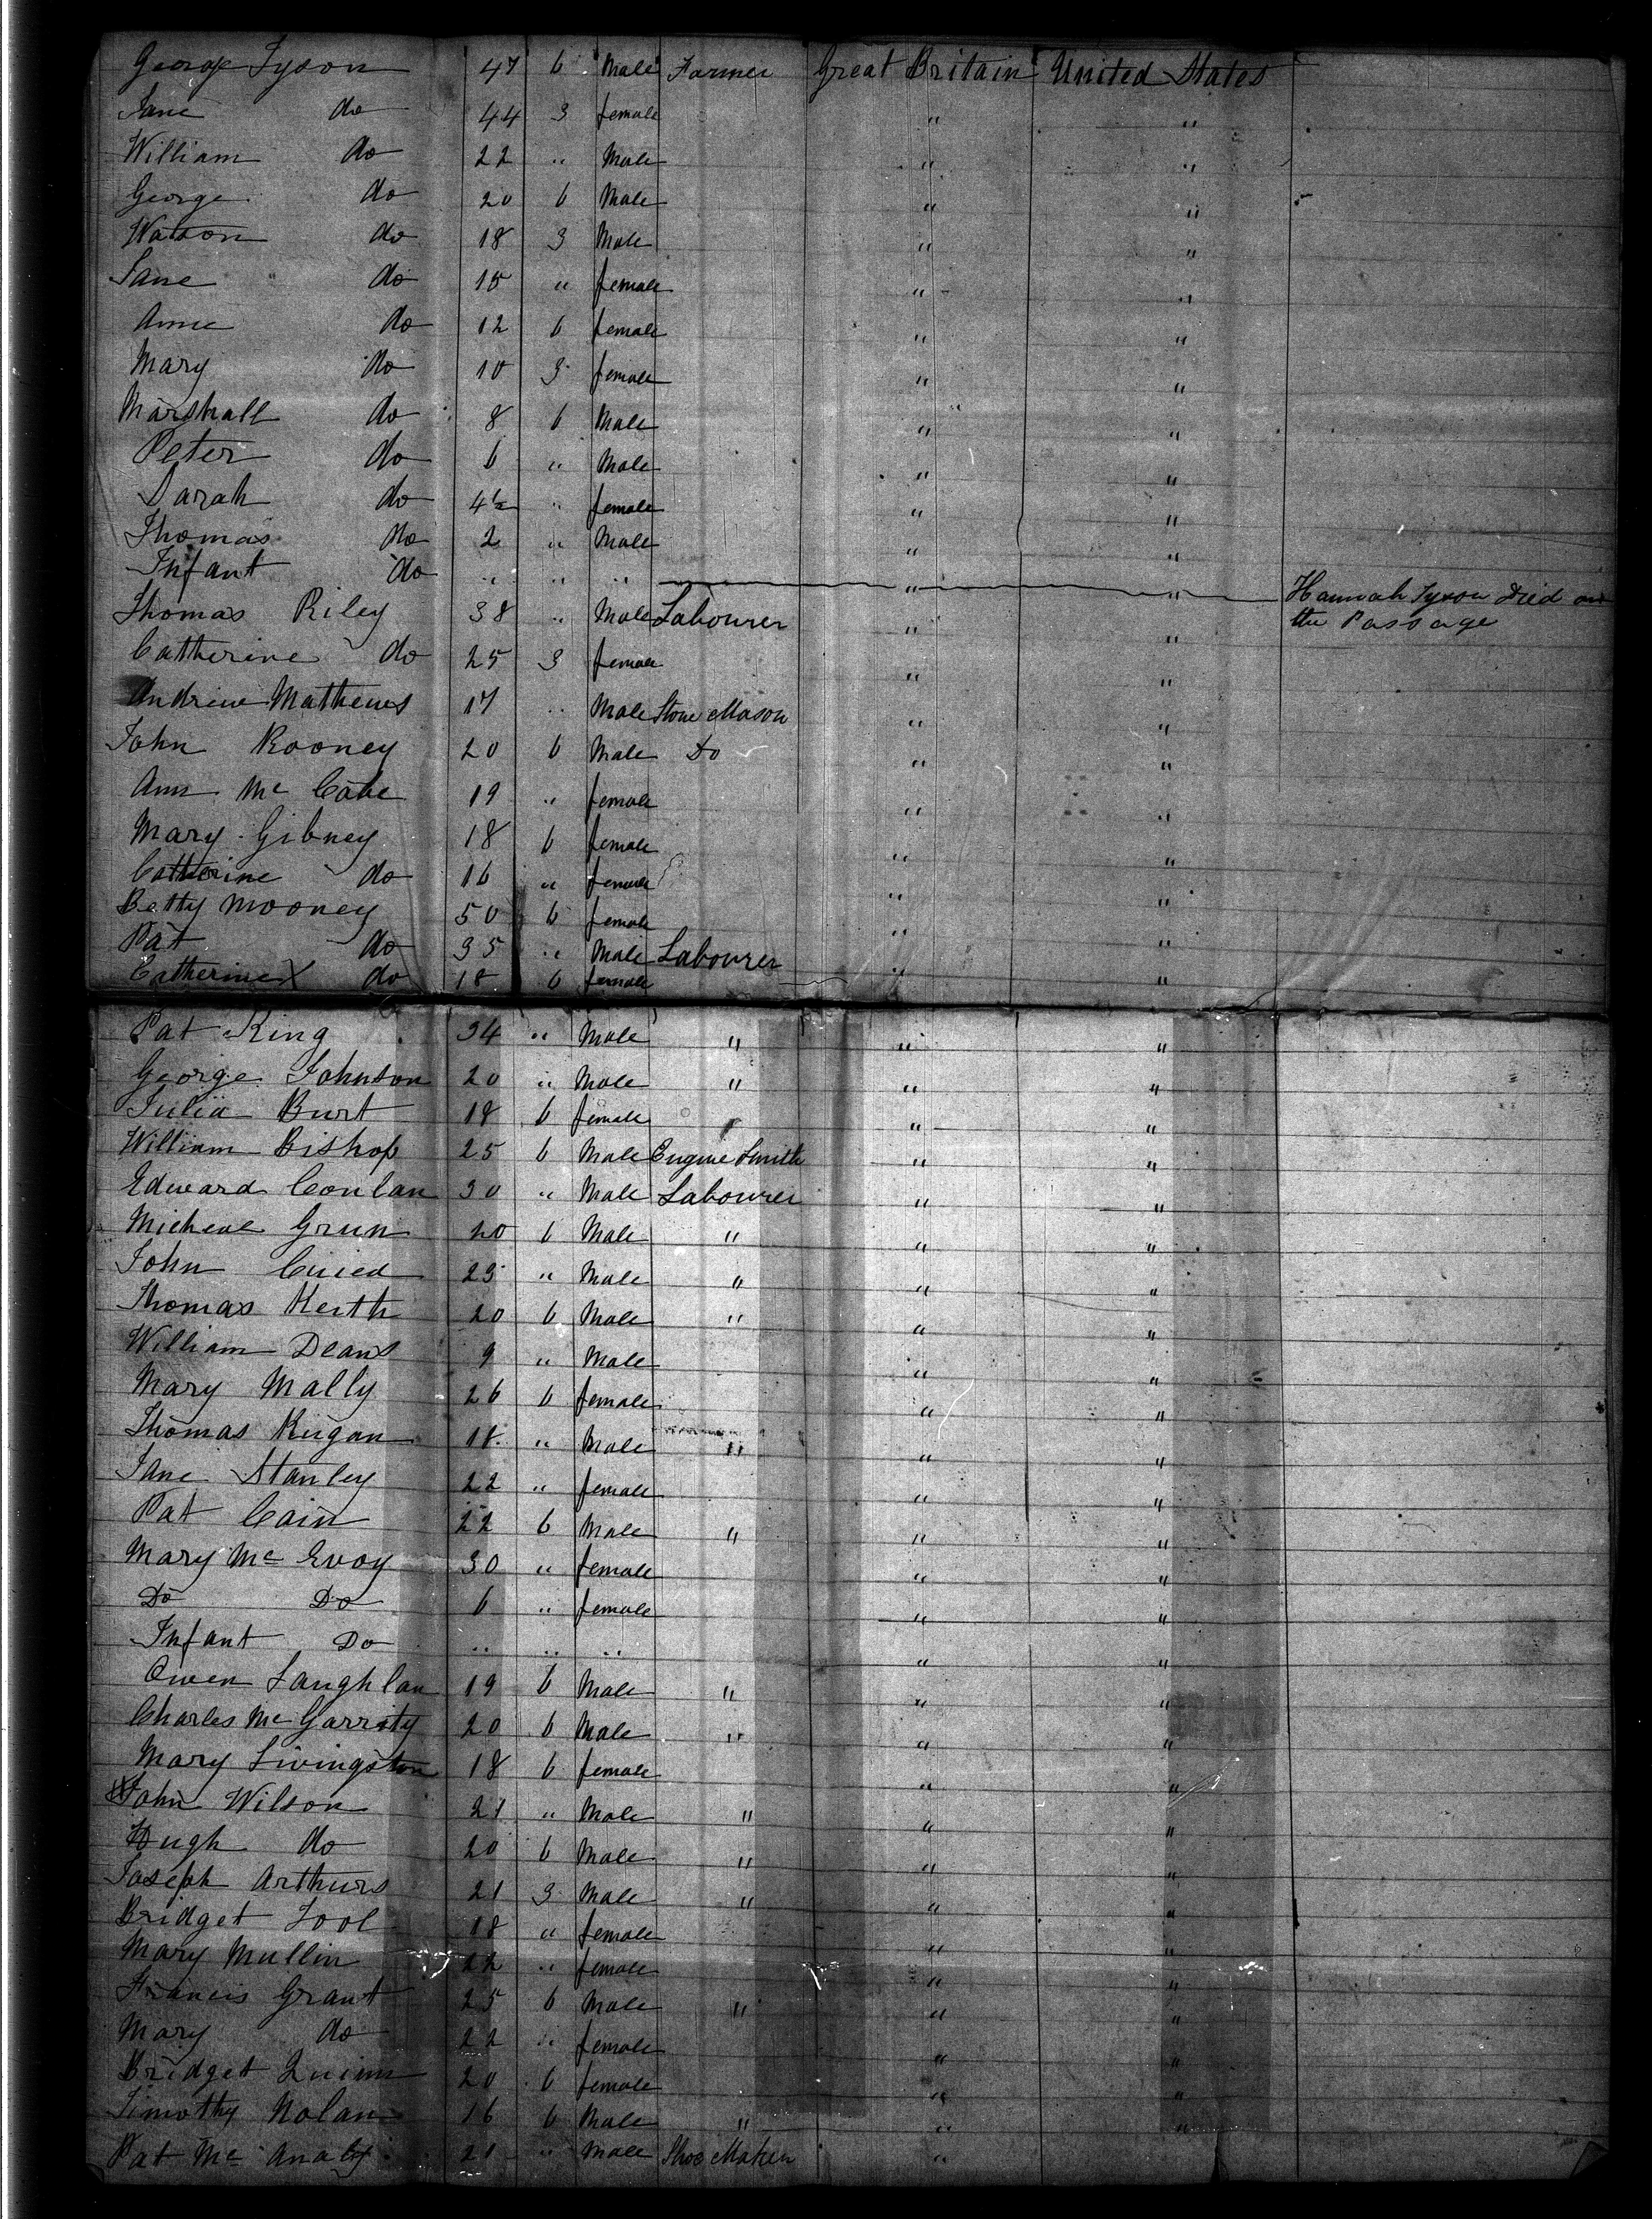 George Tyson 47 6 Male Farmer Great Britain United States
Jane do 44 3 female " "
William do 22 " Male " "
George do 20 6 Male " "
Watson do 18 3 Male " "
Jane do 15 " female " "
Anne do 12 6 female " "
Mary do 10 3 female " "
Marshall do 8 6 Male " "
Peter do 6 " Male " "
Sarah do 4½ " female " "
Thomas do 2 " Male " "
Infant do " " " " " Hannah Tyson Died on
the Passage
Thomas Riley 38 " Male Labourer " "
Catherine do 25 3 female " "
Andrew Mathews 17 " Male Stone Mason " "
John Rooney 20 6 Male Do " "
Ann Mc Cabe 19 " female " "
Mary Gibney 18 6 female " "
Catherine do 16 " female " "
Betty Mooney 50 6 female " "
Pat do 35 " Male Labourer " "
Catherine do 18 6 female " "
Pat King 34 " Male " " "
George Johnson 20 " Male " " "
Julia Burt 18 6 female " "
William Bishop 25 6 Male Engine Smith " "
Edward Conlan 30 " Male Labourer " "
Micheal Grun 20 6 Male " " "
John 23 " Male " " "
Thomas Keith 20 6 Male " " "
William Deans 9 " Male " "
Mary Mally 26 6 female " "
Thomas Kugan 18 " Male " " "
Jane Stanley 22 " female " "
Pat Cain 22 6 Male " " "
Mary Mc Evoy 30 " female " "
Do Do 6 " female " "
Infant Do " " " " "
Owen Laughlan 19 6 Male " " "
Charles Mc Garrity 20 6 Male " " "
Mary Livingston 18 6 female " "
John Wilson 21 " Male " " "
Hugh do 20 6 Male " " "
Joseph Arthurs 21 3 Male " " "
Bridget Tool 18 " female " "
Mary Mullin 22 " female " "
Francis Grant 25 6 Male " " "
Mary do 22 " female " "
Bridget Quinn 20 6 female " "
Timothy Nolan 16 6 Male " " "
Pat Mc Analy 21 " Male Shoe Maker "